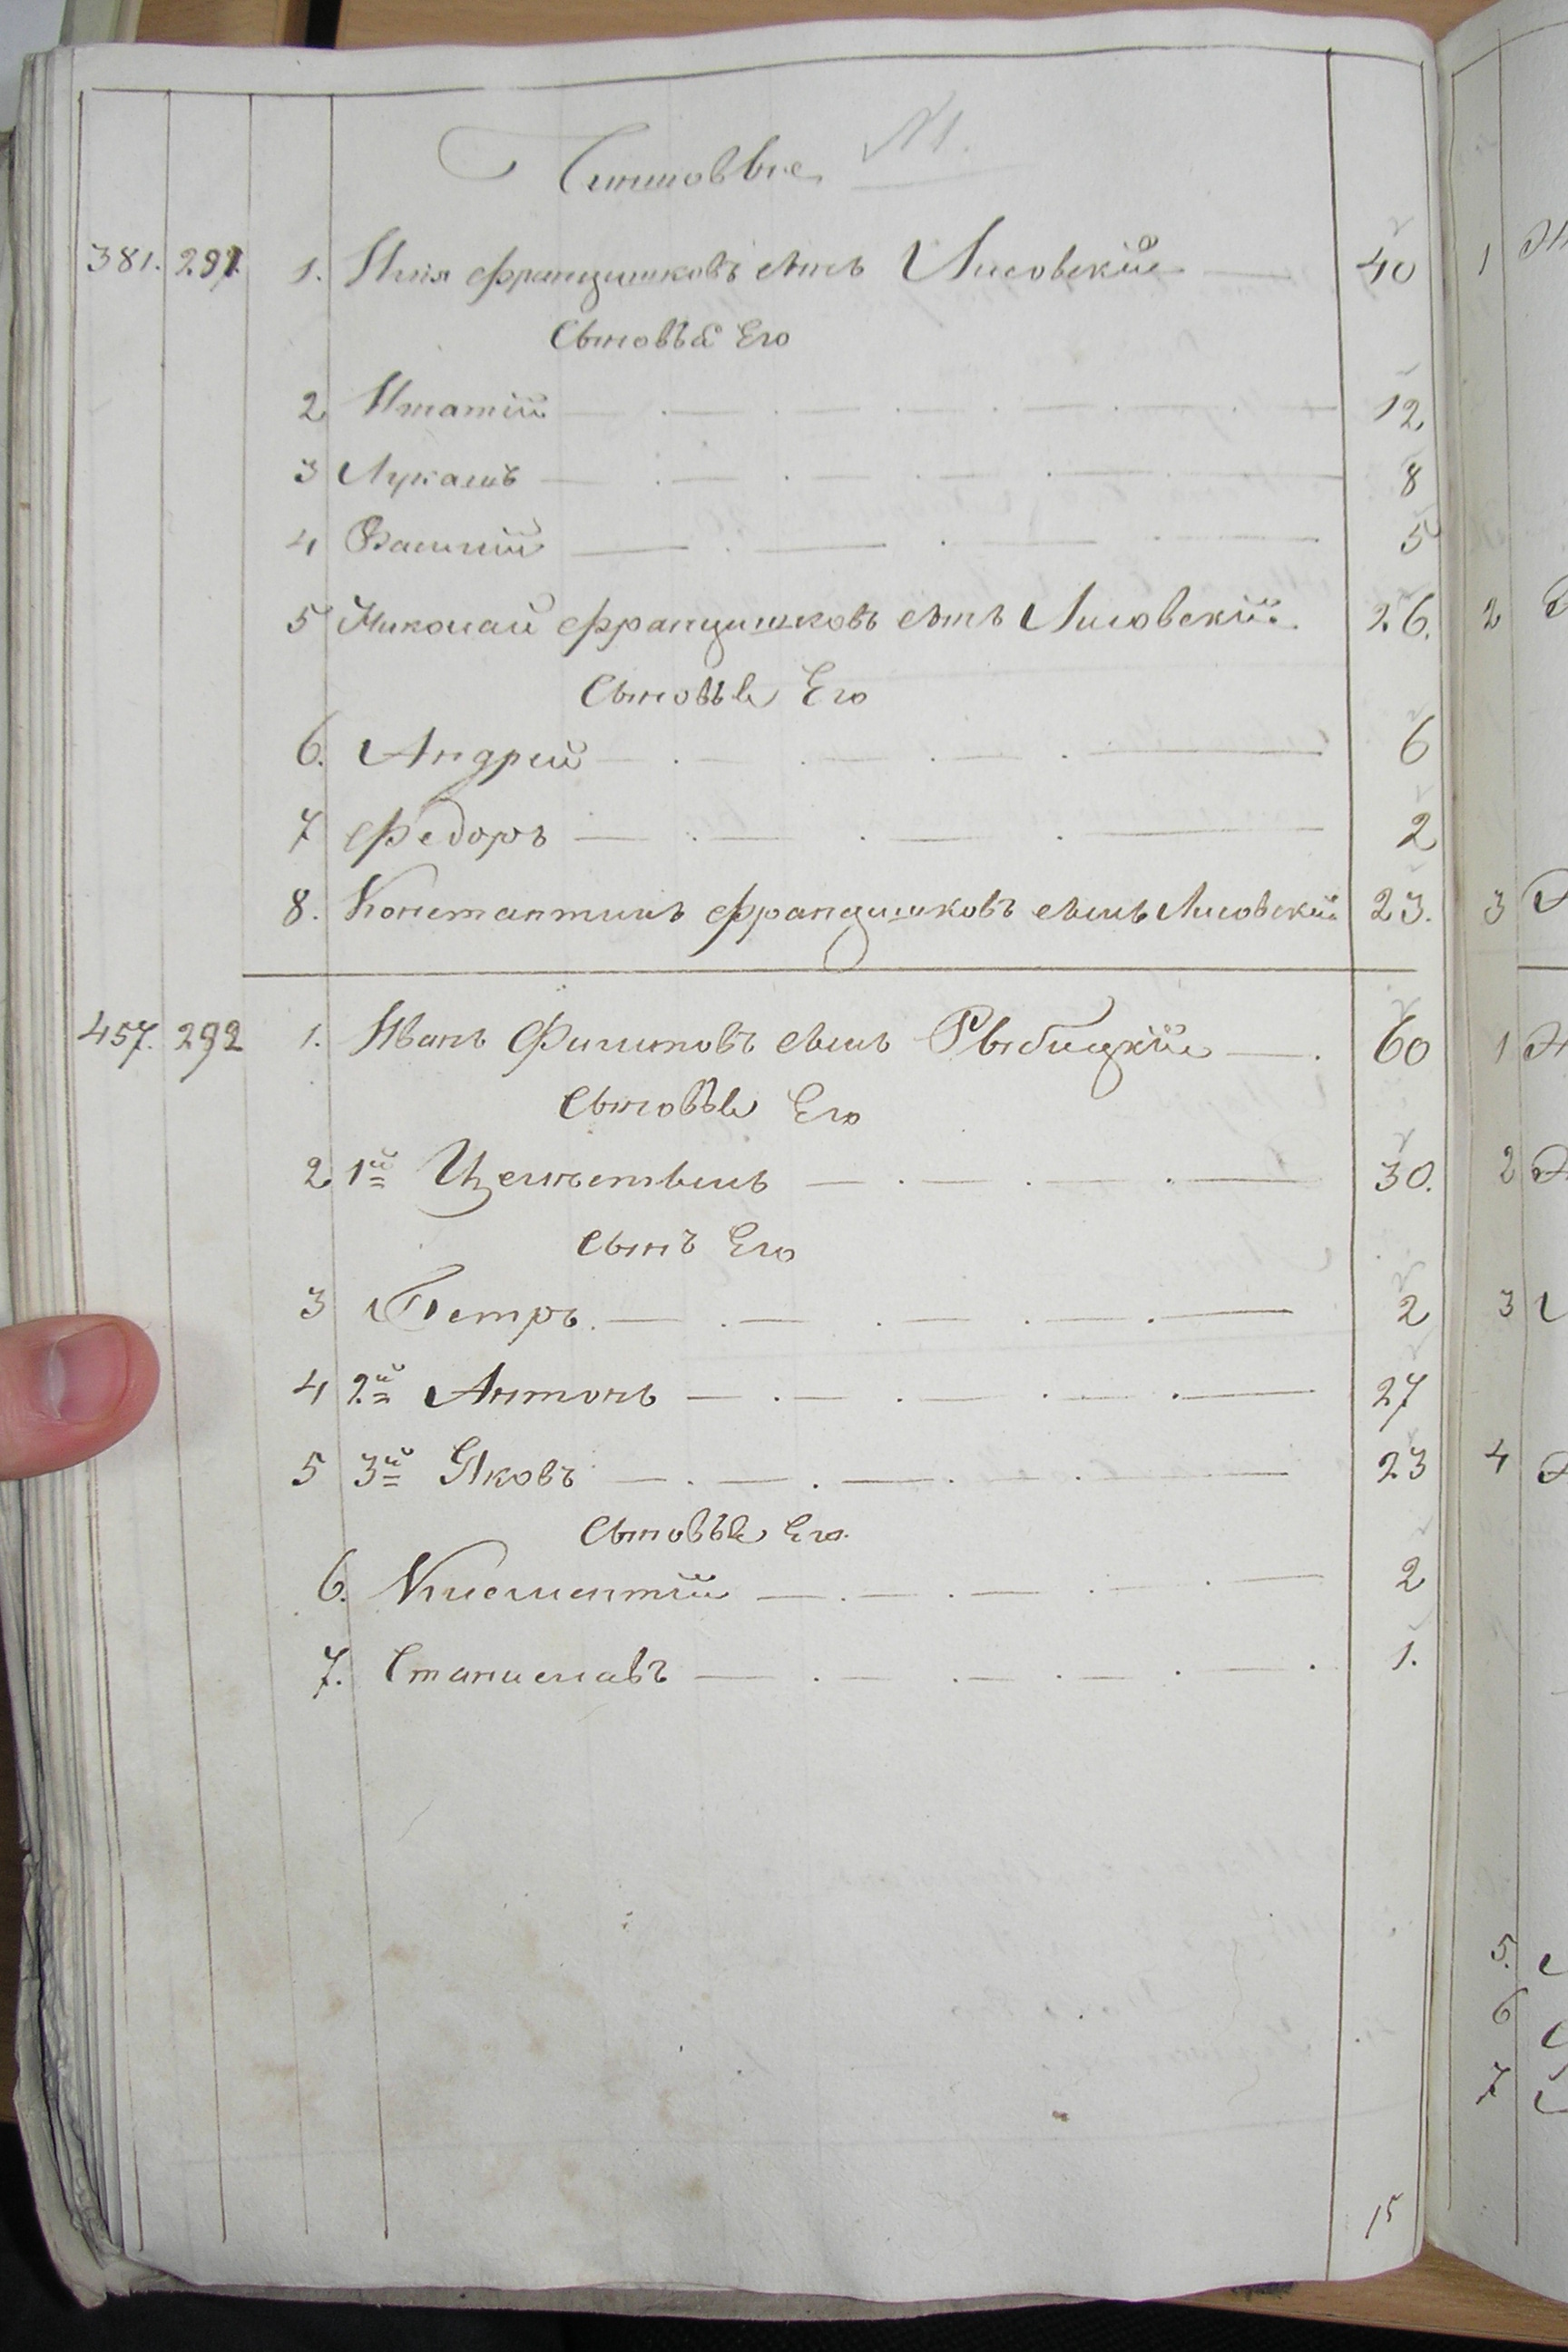 Чиншовые № 1.
381. 291. 1. Илія Францишковъ сынъ Лисовскій 40
Сыновья Его
2 Игнатій 12
3 Лукашъ 8
4 Василій 5
5 Николай Францишковъ сынъ Лисовскій. 26.
Сыновья Его
6. Андрей 6
7 Федоръ 2
8. Константинъ Францишковъ сынъ Лисовскій 23.
457. 292 1. Иванъ Филиповъ сынъ Рыбицкій 60
Сыновья Его
2 1й Целестынъ 30.
Сынъ Его
3 Петръ. 2
4 2й Антонъ 27
5 3й Яковъ 23
Сыновья Его.
6. Климентій 2
7. Станиславъ 1.
15
1
2
3
1
2
3
4
5.
6
7